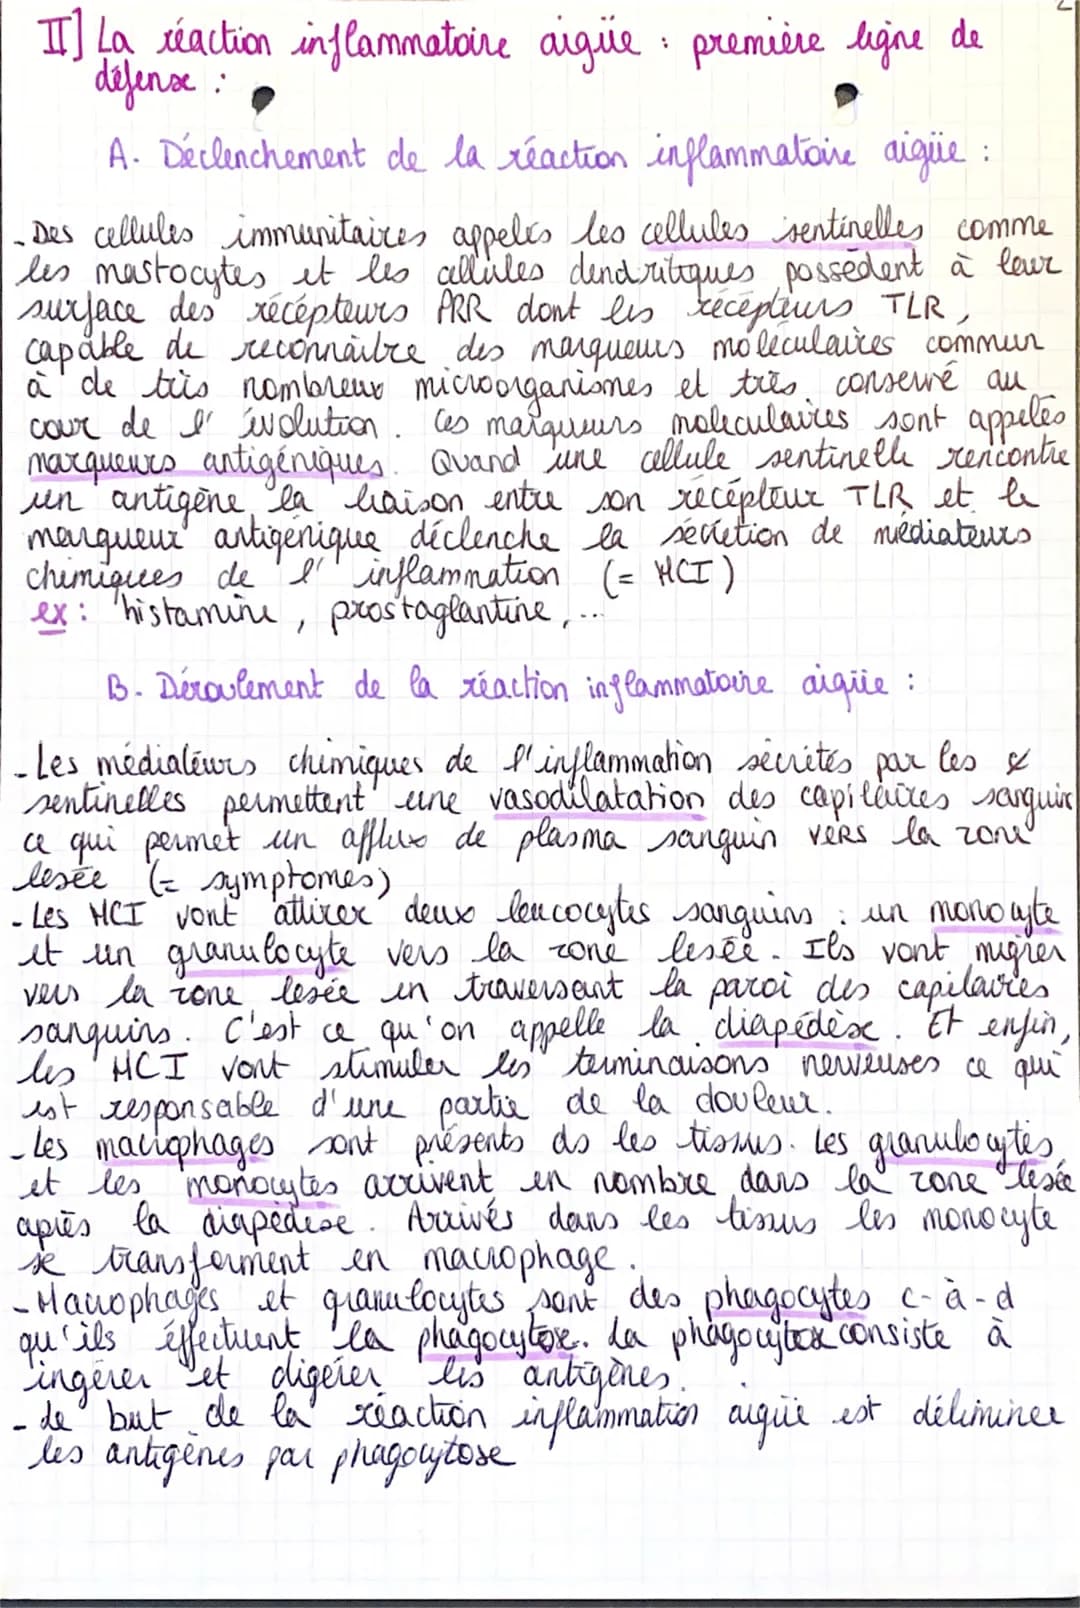 II] La réaction inflammatoire aigüe : première ligne de
défense :
A. Déclenchement de la réaction inflammatoire aigüe :
- Des cellules immunitaires appelés les cellules sentinelles comme
les mastocytes et les cellules dendritiques possèdent à leur
surface des récépteurs PRR dont les récépteurs TLR,
capable de reconnaître des marqueurs moléculaires commun
à de très nombreux microorganismes et très conservé au
cour de l'évolution. Ces marqueurs moleculaires sont appelés
marqueurs antigéniques. Quand une cellule sentinelle rencontre
un antigène la liaison entre son récépteur TLR et le
marqueur antigénique déclenche la sécrétion de médiateurs
chimiques de l'inflammation (= MCI)
ex : histamine, prostaglantine, ...
B. Déroulement de la réaction inflammatoire aigüe :
- Les médiateurs chimiques de l'inflammation sécrétés par les
sentinelles permettent une vasodilatation des capilaires sanguins
ce qui permet un afflux de plasma sanguin vers la zone
lesée (= symptomes)
- Les MCI vont attirer deux leucocytes sanguins : un monocyte
et un granulocyte vers la zone lesée. Ils vont migrer
vers la zone lesée en traversant la paroi des capilaires
sanguins. C'est ce qu'on appelle la diapédèse. Et enfin,
les MCI vont stimuler les terminaisons nerveuses ce qui
est responsable d'une partie de la douleur.
- Les macrophages sont présents ds les tissus. Les granulocytes
et les monocytes arrivent en nombre dans la zone lesée
après la diapédèse. Arrivés dans les tissus les monocyte
se transforment en macrophage.
- Macrophages et granulocytes sont des phagocytes c-à-d
qu'ils éffectuent la phagocytose. La phagocytose consiste à
ingérer et digérer les antigènes.
- Le but de la réaction inflammation aigüe est déliminer
les antigènes par phagocytose